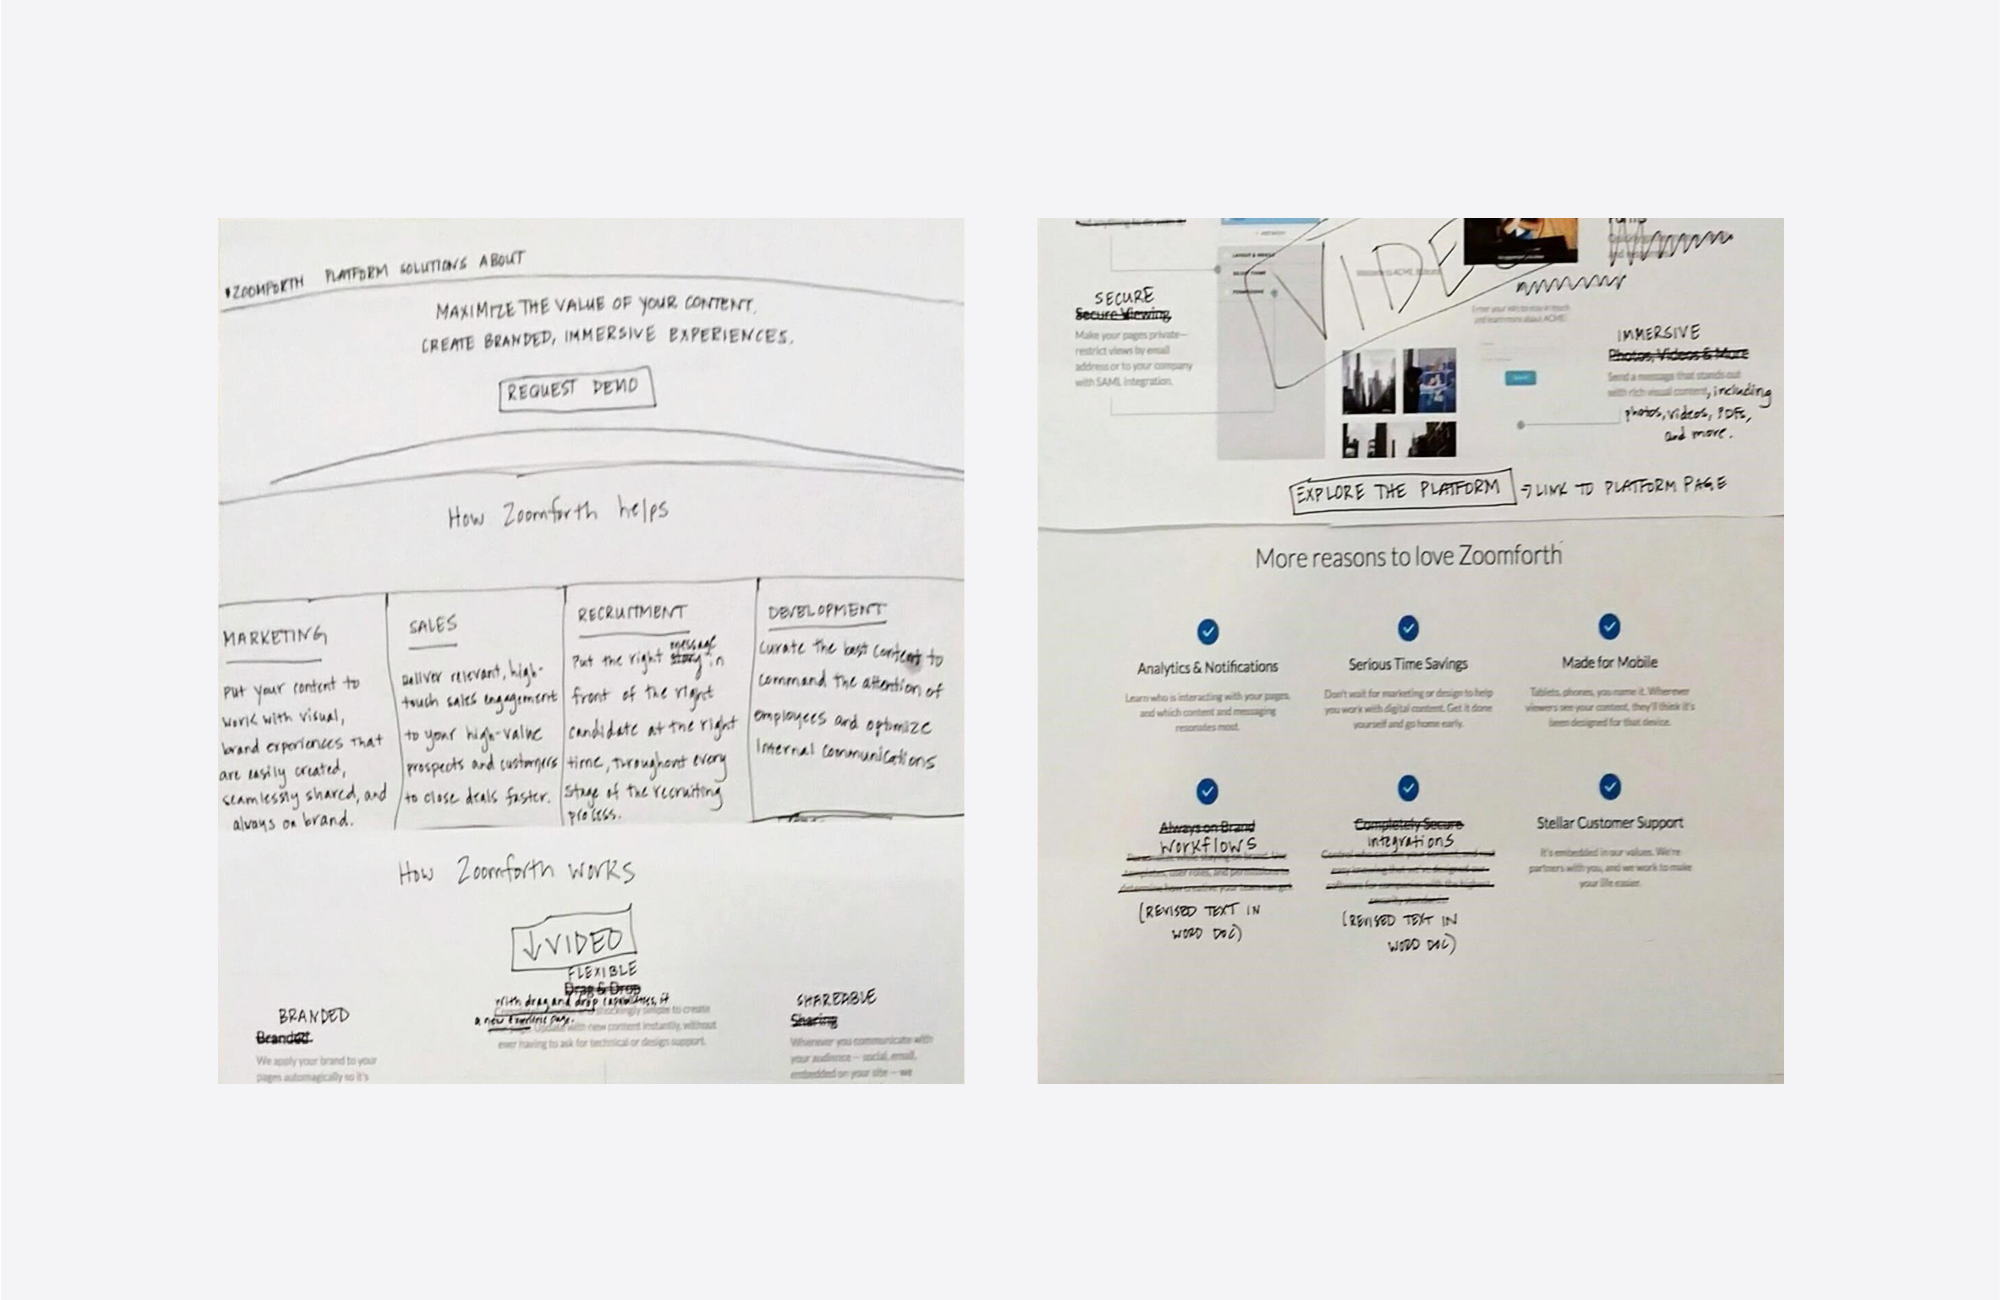 ZOOMFORTH PLATFORM SOLUTIONS ABOUT
MAXIMIZE THE VALUE OF YOUR CONTENT.
CREATE BRANDED, IMMERSIVE EXPERIENCES.
REQUEST DEMO
How Zoomforth helps
MARKETING
Put your content to
work with visual,
brand experiences that
are easily created,
seamlessly shared, and
always on brand.
SALES
Deliver relevant, high-
touch sales engagement
to your high-value
prospects and customers
to close deals faster.
RECRUITMENT
message
Put the right story in
front of the right
candidate at the right
time, throughout every
stage of the recruiting
process.
DEVELOPMENT
Curate the best content to
command the attention of
employees and optimize
internal communications
How Zoomforth works
VIDEO
BRANDED
Branded
We apply your brand to your
pages automagically so it's
FLEXIBLE
Drag & Drop
With drag and drop capabilities, it
shockingly simple to create
a new page. Update with new content instantly, without
ever having to ask for technical or design support.
SHAREABLE
Sharing
Wherever you communicate with
your audience – social, email,
embedded on your site – we
VIDEO
LAYOUT & MEDIA
SECURE
Secure Viewing
Make your pages private—
restrict views by email
address or to your company
with SAML integration.
IMMERSIVE
Photos, Videos & More
Send a message that stands out
with rich visual content, including
photos, videos, PDFs,
and more.
EXPLORE THE PLATFORM → LINK TO PLATFORM PAGE
More reasons to love Zoomforth
Analytics & Notifications
Learn who is interacting with your pages,
and which content and messaging
resonates most.
Serious Time Savings
Don't wait for marketing or design to help
you work with digital content. Get it done
yourself and go home early.
Made for Mobile
Tablets, phones, you name it. Wherever
viewers see your content, they'll think it's
been designed for that device.
Always on Brand
Workflows
(REVISED TEXT IN
WORD DOC)
Completely Secure
Integrations
(REVISED TEXT IN
WORD DOC)
Stellar Customer Support
It's embedded in our values. We're
partners with you, and we work to make
your life easier.